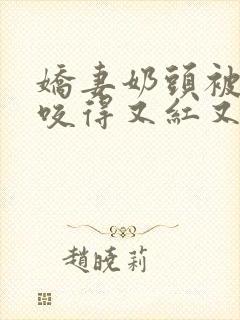 嬌妻奶頭被
咬得又紅又
趙曉莉